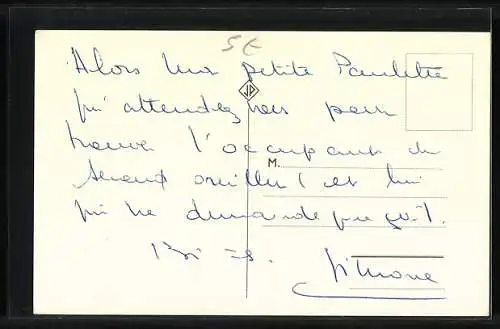 5€
Alors ma petite Paulette
qu'attendez vous pour
trouver l'occupant du
second oreiller (et lui
qui ne demande que ça).
JP
M.
Bises.
Simone